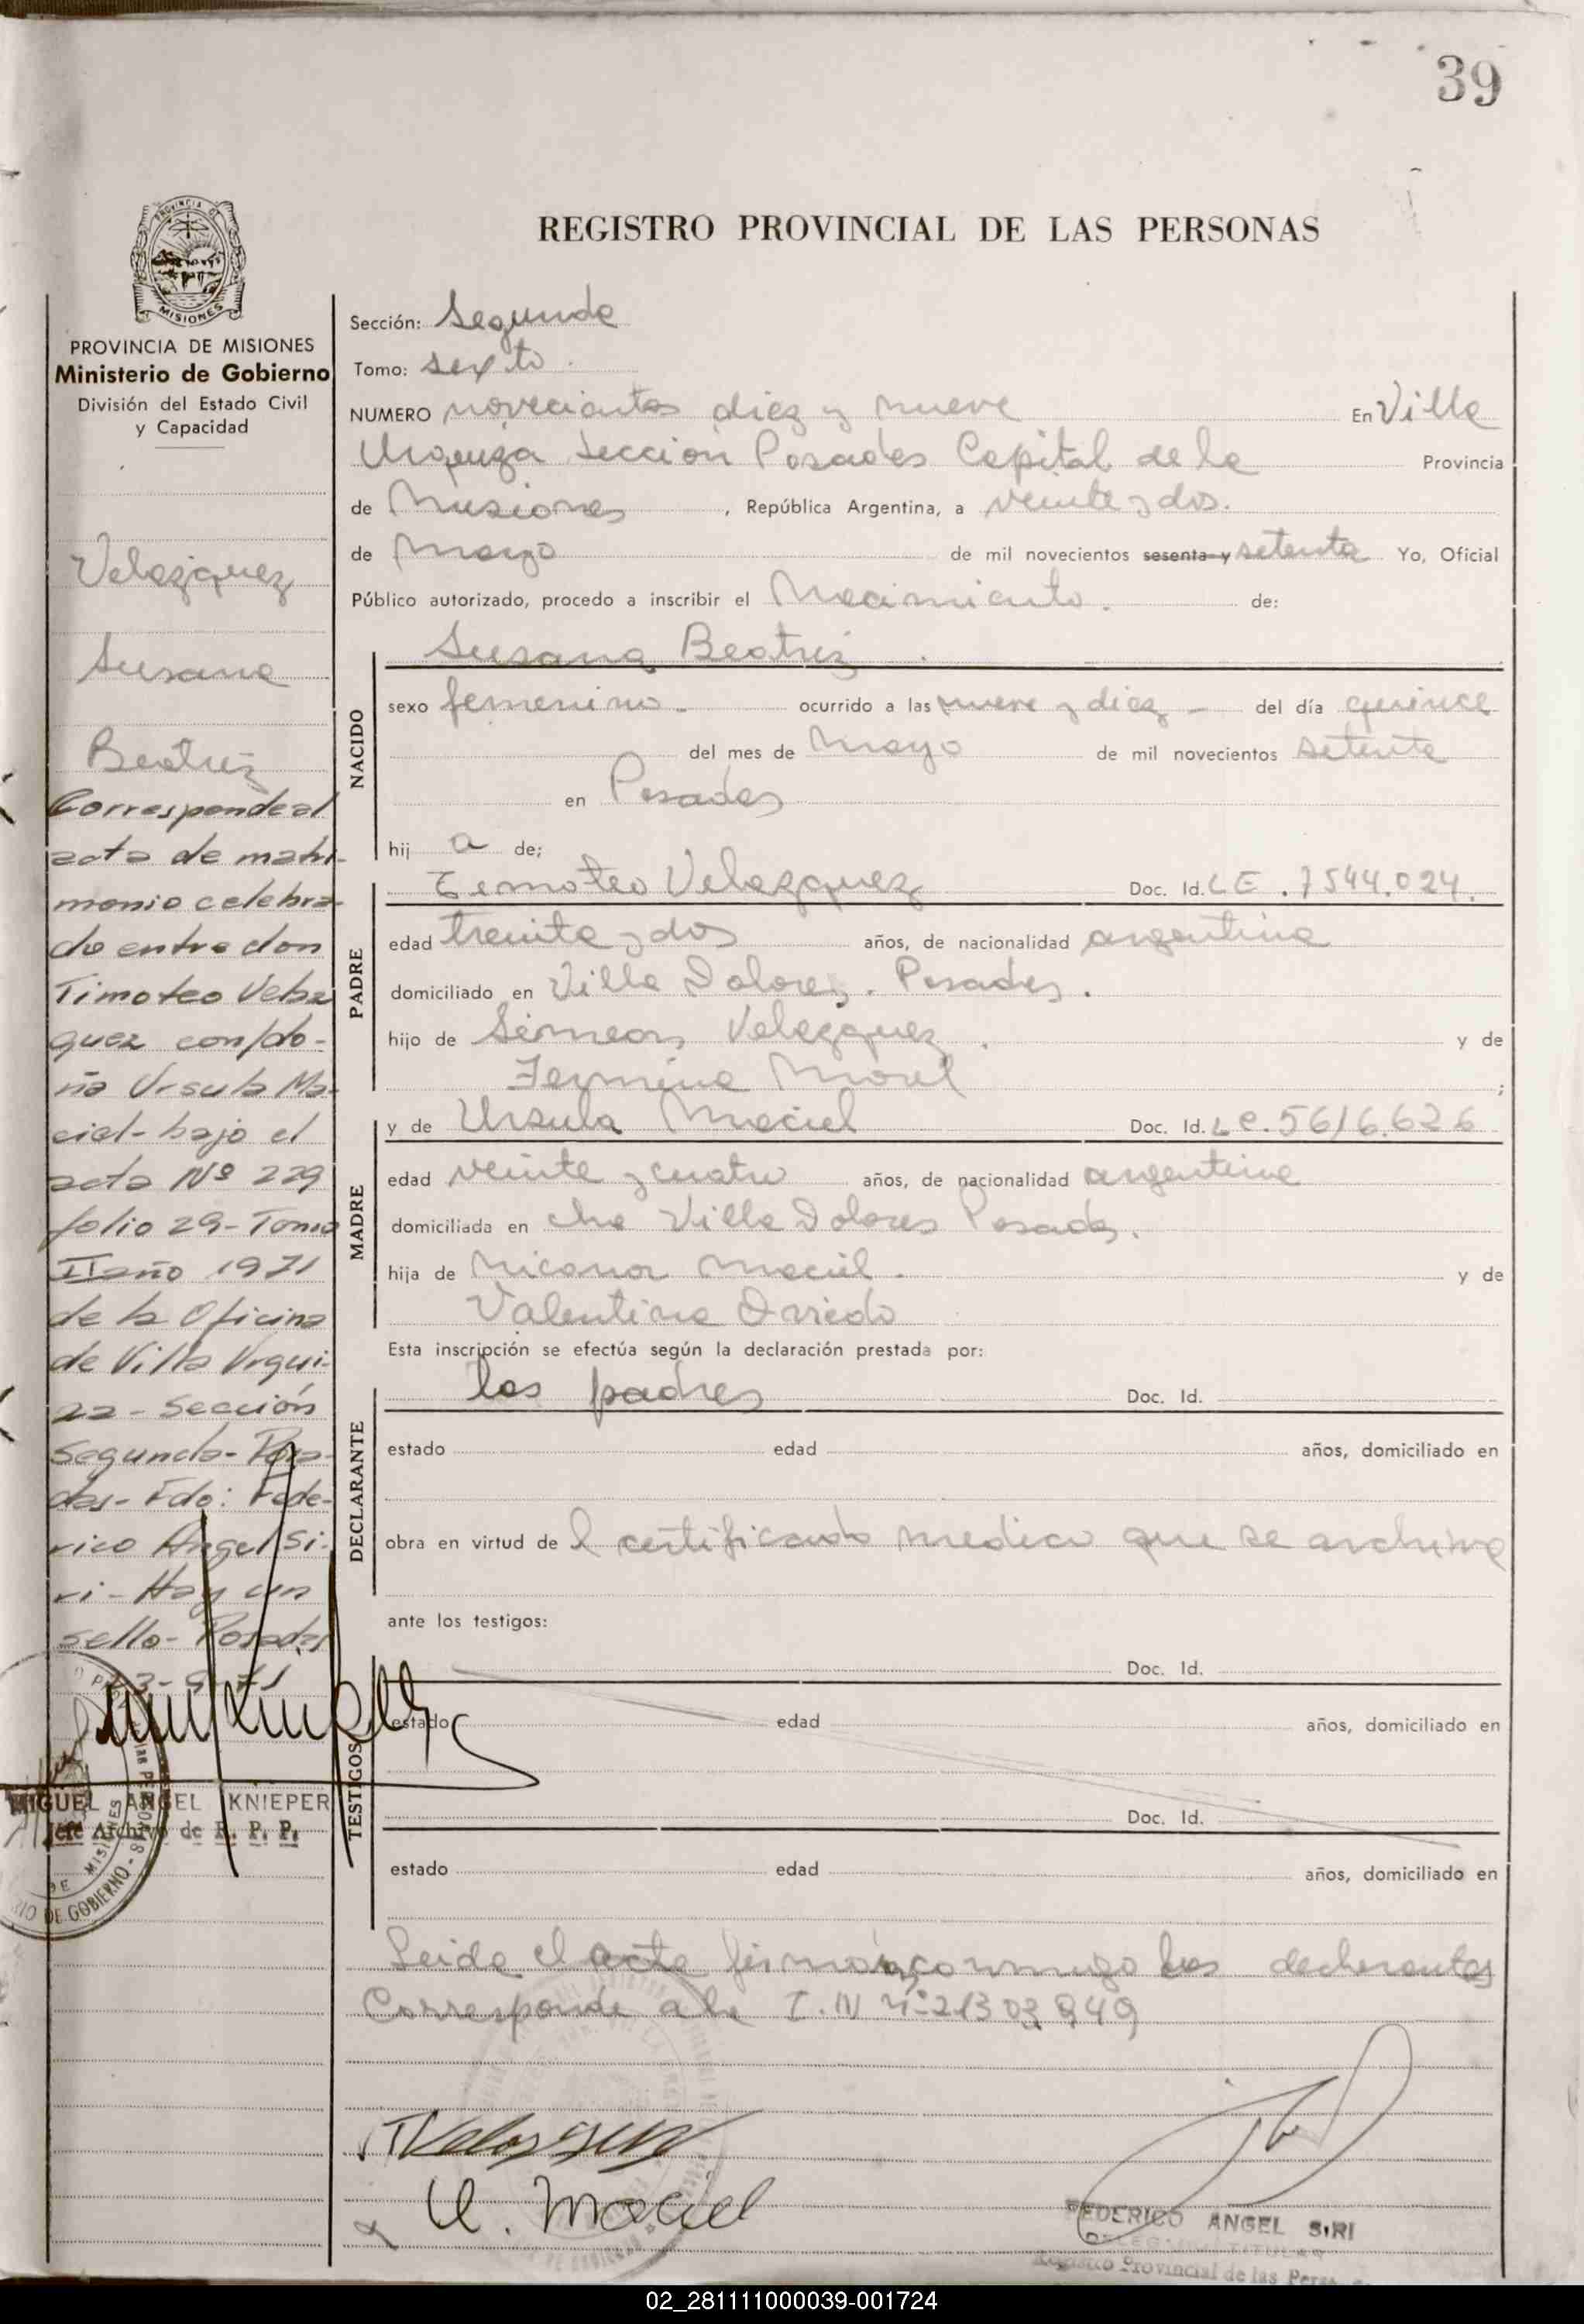 39
REGISTRO PROVINCIAL DE LAS PERSONAS
PROVINCIA DE
MISIONES
PROVINCIA DE MISIONES
Ministerio de Gobierno
División del Estado Civil
y Capacidad
Velazquez
Susana
Beatriz
Corresponde al
acta de matri-
monio celebra-
do entre don
Timoteo Velaz
quez con do-
ña Ursula Ma-
ciel- bajo el
acta Nº 229
folio 29- Tomo
II año 1971
de la Oficina
de Villa Urqui-
za - Sección
Segunda- Posa-
das- Fdo: Fede-
rico Angel Si-
ri- Hay un
sello- Posadas
3-9-71
MIGUEL ANGEL KNIEPER
Jefe Archivo de R. P. P.
Sección: Segunda
Tomo: sexto
NUMERO novecientos diez y nueve En Villa
Urquiza Sección Posadas Capital de la Provincia
de Misiones , República Argentina, a veinte y dos.
de mayo de mil novecientos sesenta y setenta Yo, Oficial
Público autorizado, procedo a inscribir el Nacimiento. de:
NACIDO
Susana Beatriz
sexo femenino - ocurrido a las nueve y diez - del día quince
del mes de mayo de mil novecientos setenta
en Posadas
hij a de;
PADRE
Timoteo Velazquez Doc. Id. LE. 7544.024.
edad treinta y dos años, de nacionalidad argentina
domiciliado en Villa Dolores. Posadas.
hijo de Simeon Velazquez. y de
Fermina Morel ;
MADRE
y de Ursula Maciel Doc. Id. LC. 5616.626
edad veinte y cuatro años, de nacionalidad argentina
domiciliada en Villa Dolores Posadas.
hija de Nicanor Maciel. y de
Valentina Oviedo
Esta inscripción se efectúa según la declaración prestada por:
DECLARANTE
los padres Doc. Id.
estado edad años, domiciliado en
obra en virtud de l certificado medico que se archiva
ante los testigos:
TESTIGOS
Doc. Id.
estado edad años, domiciliado en
Doc. Id.
estado edad años, domiciliado en
Leida el acta firman conmigo los declarantes
Corresponde a la I.N nº 21303849
T Velazquez
U. Maciel
FEDERICO ANGEL SIRI
DELEGADO TITULAR
Registro Provincial de las Pers
02_281111000039-001724